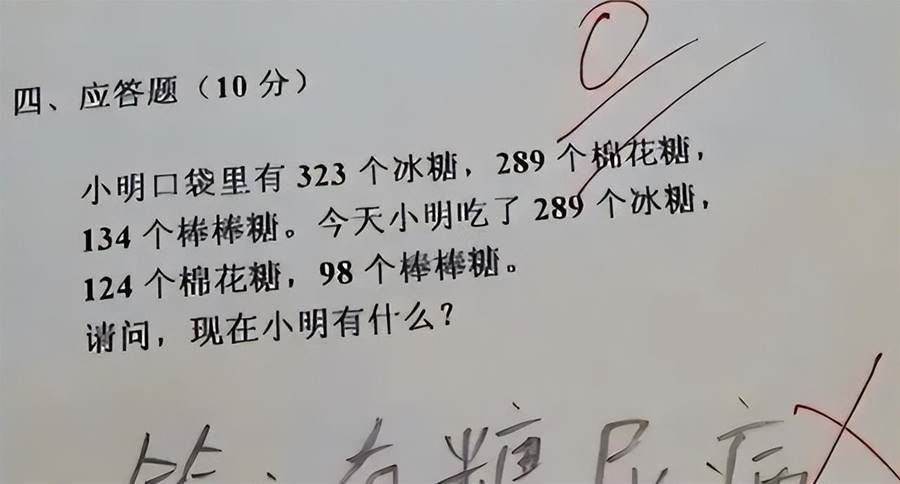 0
四、应答题（10 分）
小明口袋里有 323 个冰糖，289 个棉花糖，
134 个棒棒糖。今天小明吃了 289 个冰糖，
124 个棉花糖，98 个棒棒糖。
请问，现在小明有什么？
答：有糖尿病